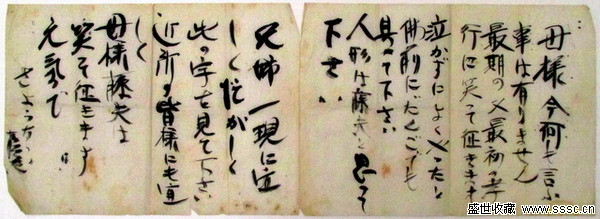 母様今何も言ふ
事は有りません
最期の又最初の孝
行に笑って征きます
泣かずによくやったと
佛前にだんごでも
具へて下さい
人形は藤夫と思って
下さい
兄姉一現に宜
しく
此の字を見て下さい
近所の皆様にも宜
しく
母様藤夫は
笑って征きます
元気で
さようなら
盛世收藏
www.sssc.cn